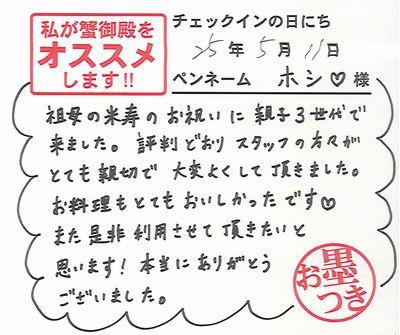 私が蟹御殿を
オススメ
します!!
チェックインの日にち
25年5月11日
ペンネーム ホシ♡様
祖母の米寿のお祝いに親子3世代で
来ました。評判どおりスタッフの方々が
とても親切で大変よくして頂きました。
お料理もとてもおいしかったです♡
また是非利用させて頂きたいと
思います!本当にありがとう
ございました。
お墨つき